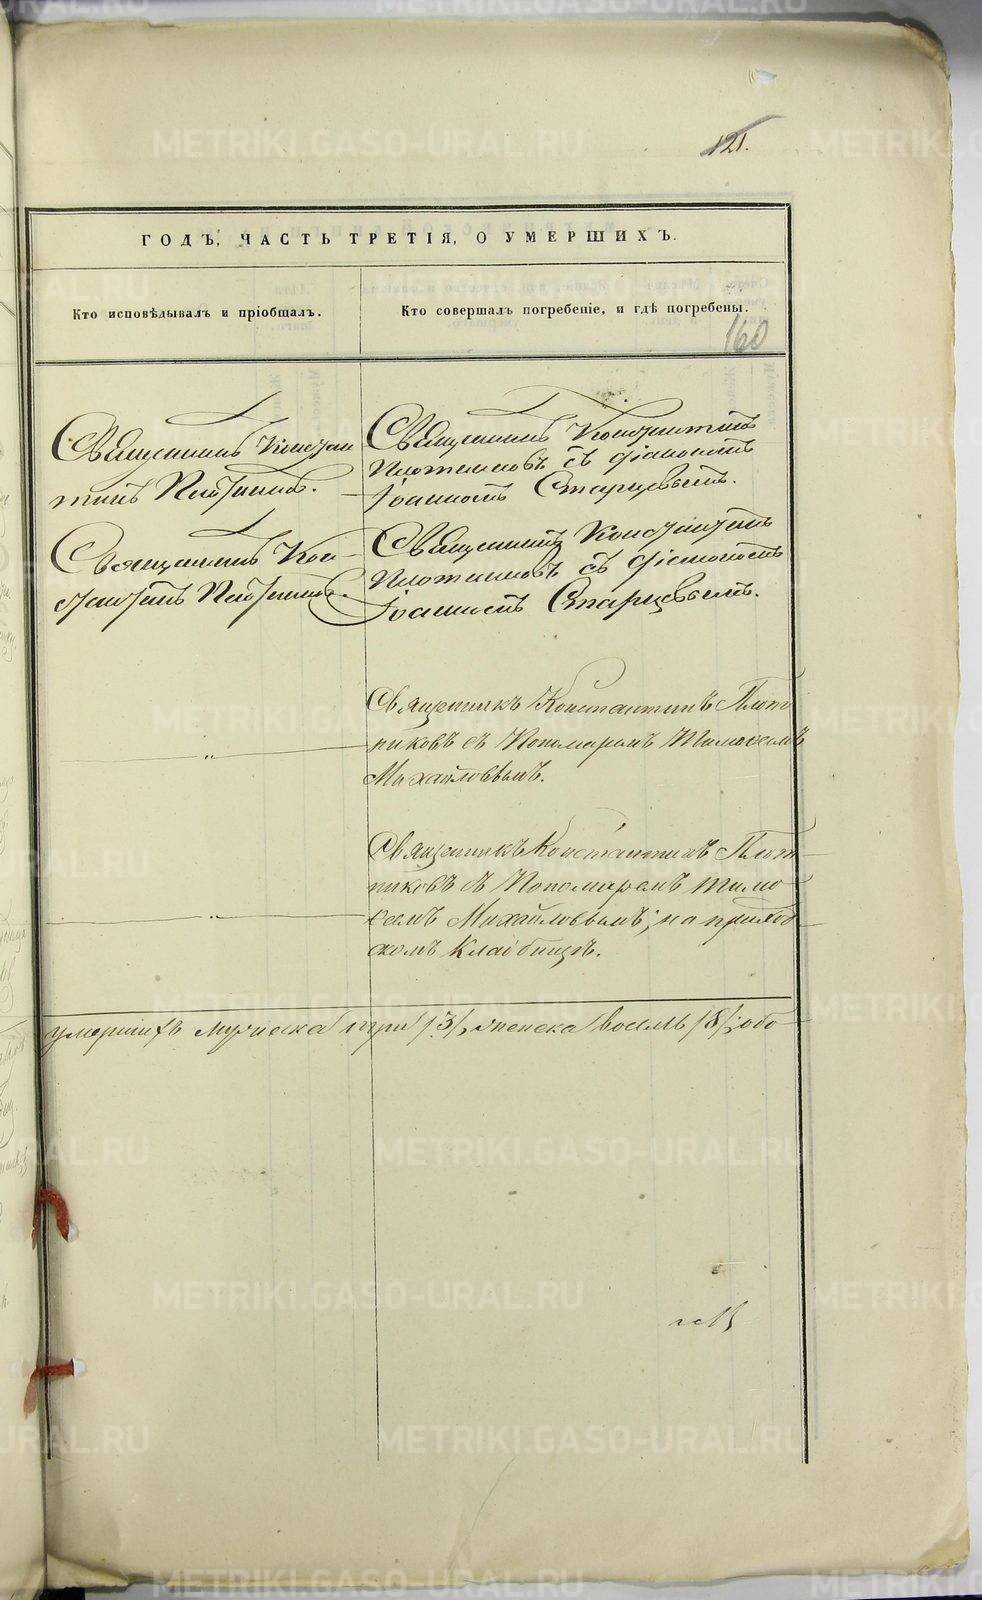 121.
ГОДЪ, ЧАСТЬ ТРЕТІЯ, О УМЕРШИХЪ.
Кто исповѣдывалъ и пріобщалъ.
Кто совершалъ погребеніе, и гдѣ погребены.
160
Священникъ Констан
тинъ Плотников.
Священникъ Константинъ
Плотниковъ съ Діакономъ
Іоанномъ Старцевымъ.
Священникъ Кон-
стантинъ Плотниковъ.
Священникъ Константинъ
Плотниковъ съ Діакономъ
Іоанномъ Старцевымъ.
Священникъ Константинъ Плот
никовъ съ Пономаремъ Тимоѳеемъ
Михайловымъ.
Священникъ Константинъ Плот-
никовъ съ Пономаремъ Тимо-
ѳеемъ Михайловымъ; на приход-
скомъ кладбищѣ.
умершихъ мужеска три /3/, женска восемь /8/, обо-
METRIKI.GASO-URAL.RU